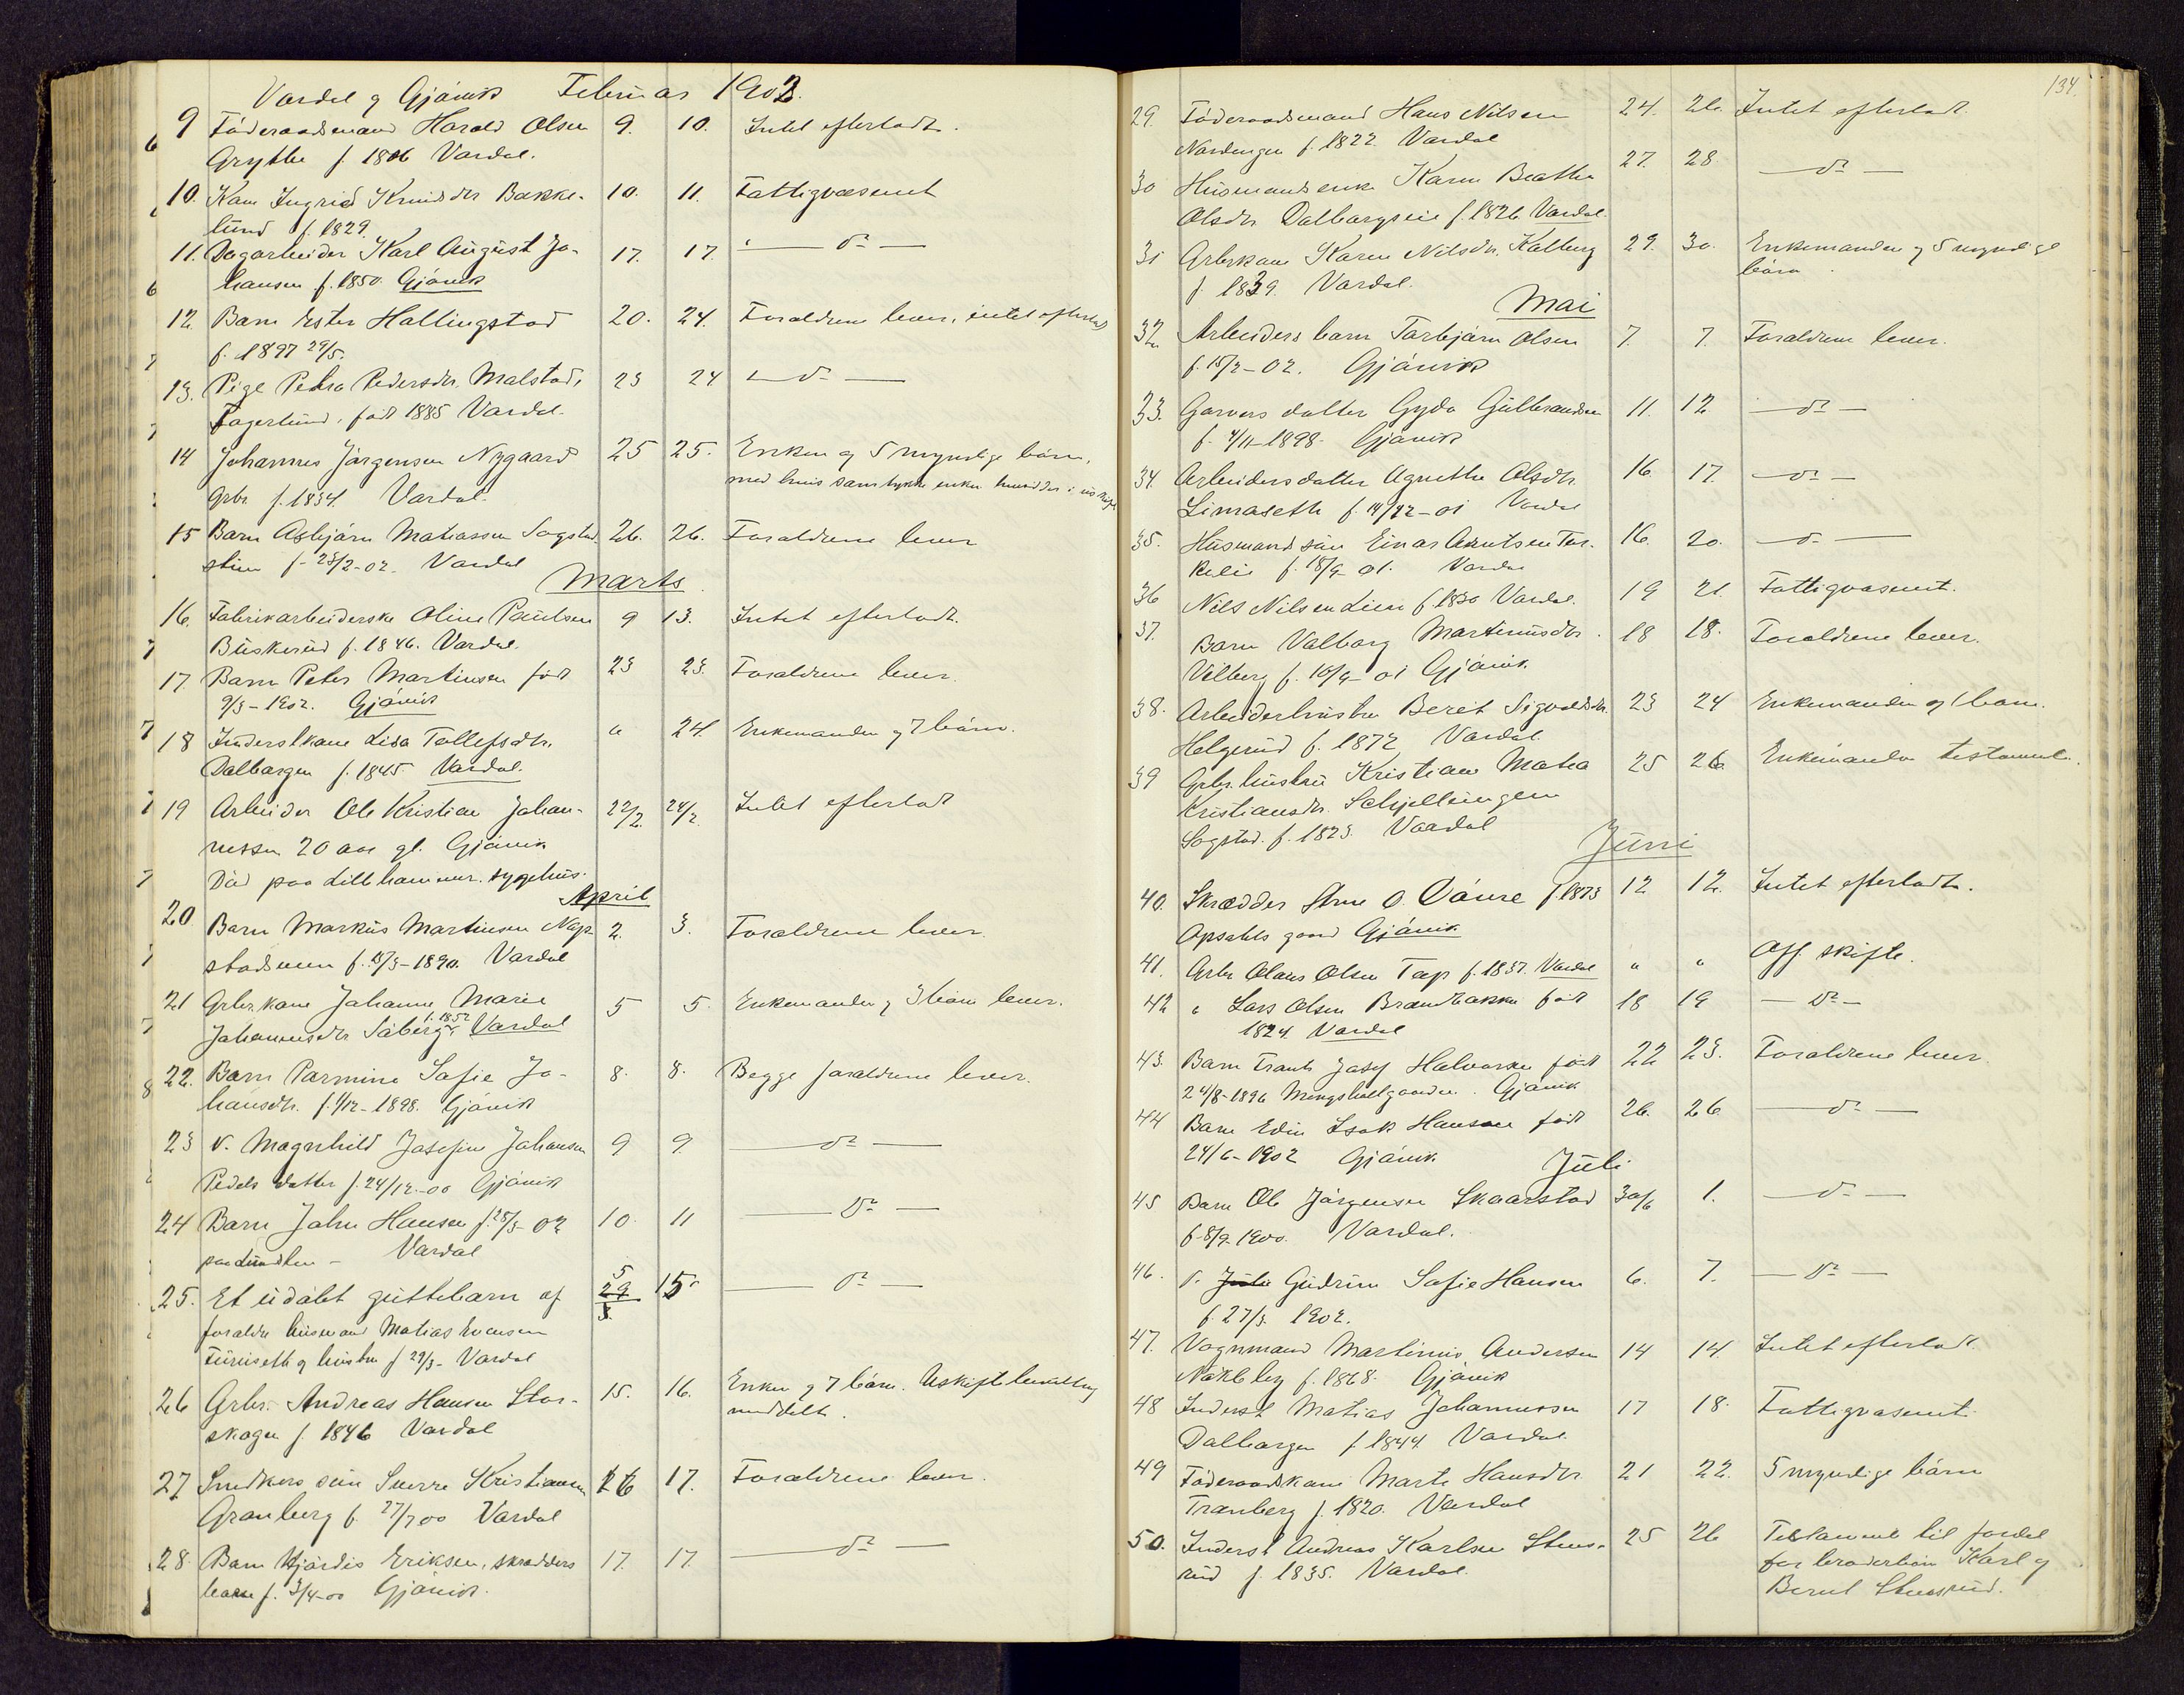 Vardal og Gjøvik Februar 1902.
9 Föderaadsmand Harald Olsen 9. 10. Intet efterladt.
Grythe f. 1806 Vardal.
10. Kone Ingrid Knudsdr Bakke- 10. 11. Fattigvæsenet
lund f. 1829.
11. Dagarbeider Karl August Jo- 17. 17. " — do —
hansen f. 1850. Gjøvik
12. Barn Ester Hallingstad 20. 24. Forældrene lever, intet efterladt
f. 1897 29/5.
13. Pige Petra Pedersdr. Malstad, 23 24 — do —
Fagerlund, født 1885 Vardal.
14 Johannes Jørgensen Nygaard 25 25. Enken og 5 myndige børn,
Gbr. f. 1834. Vardal. med hvis samtykke enken hensidder i uskifte
15 Barn Asbjørn Matiassen Sogstad 26. 26. Forældrene lever
stuen f. 23/2-02. Vardal
Marts
16. Fabrikarbeiderske Oline Paulsen 9 13. Intet efterladt.
Buskerud f. 1846. Vardal.
17. Barn Peter Martinsen født 23 23. Forældrene lever.
9/3-1902. Gjøvik
18 Inderstkone Lisa Tollefsdtr. " 24. Enkemanden og 7 børn.
Dalborgen f. 1845. Vardal.
19 Arbeider Ole Kristian Johan- 22/2. 24/2. Intet efterladt
nessen 20 aar gl. Gjøvik
Død paa Lillehammer sygehus.
April
20 Barn Markus Martinsen Nøp- 2. 3. Forældrene lever.
stadsveen f. 15/3-1890. Vardal
21 Gbr.kone Johanne Marie 5 5. Enkemanden og 3 børn lever.
f. 1852
Johannesdr Søberg, Vardal
22. Barn Parmine Sofie Jo- 8. 8. Begge forældrene lever.
hansdr. f. 1/12-1898. Gjøvik
23 do. Magnhild Josefine Johansen 9 9. — do —
Pedels datter f. 24/12-00 Gjøvik
24 Barn John Hansen f. 28/3-02 10. 11 — do —
paa Lundten - Vardal
5
25. Et udøbt guttebarn af 29 15. — do —
3.
forældre husmand Matias Evensen
Furuseth og hustru f 29/3- Vardal
26 Gbr. Andreas Hansen Stor- 15. 16. Enken og 7 børn. Uskiftebevilling
skogen f. 1846 Vardal meddelt.
27 Snedkers søn Sverre Kristiansen 16 17. Forældrene lever.
Granberg f. 27/7 00 Vardal
28. Barn Hjørdis Eriksen, skrædders 17. 17. — do —
barn f. 3/4-00 Gjøvik.
134.
29. Föderaadsmand Hans Nilsen 24. 26. Intet efterladt.
Nordengen f. 1822. Vardal
30 Husmandsenke Karen Beathe 27. 28 — do —
Olsdr. Dalborgseie f. 1826 Vardal.
31 Gbrkone Karen Nilsdr. Kalberg 29. 30. Enkemanden og 5 myndige
f. 1829. Vardal. børn.
Mai
32. Arbeiders barn Torbjørn Olsen 7. 7. Forældrene lever.
f. 15/2-02. Gjøvik
33. Garvers datter Gyda Gulbrandsen 11. 12 — do —
f. 4/11-1898. Gjøvik
34. Arbeidersdatter Agnethe Olsdtr. 16. 17. — do —
Limoseth f. 14/12-01 Vardal
35. Husmandssøn Einar Amutsen Tor- 16. 20. — do —
keleie f. 18/9-01. Vardal
36 Nils Nilsen Lien f. 1830 Vardal. 19 21. Fattigvæsenet.
37. Barn Valborg Martinusdr. 18 18. Forældrene lever.
Vilberg f. 10/9-01 Gjøvik
38. Arbeiderhustru Beret Sigvaldsdr. 23 24 Enkemanden og 1 barn.
Helgerud f. 1872 Vardal.
39 Gbr. hustru Kristiane Matea 25 26. Enkemanden testamente.
Kristiansdr. Schjellungen
Sogstad. f. 1823. Vardal
Juni
40. Skrædder Arne O. Vaure f. 1873 12. 12. Intet efterladt.
Opsahls gaard Gjøvik
41. Gbr Olaus Olsen Tap f. 1837. Vardal " " Off. skifte.
42 " Lars Olsen Brændbakke født 18 19 — do —
1824. Vardal
43. Barn Frants Josef Halvorsen født 22 23. Forældrene lever.
24/8-1896 Mengsholtgaarden. Gjøvik
44 Barn Edin Isak Hansen født 26. 26 — do —
24/6-1902 Gjøvik.
Juli
45 Barn Ole Jørgensen Skaarstad 30/6 1. — do —
f. 8/9-1900. Vardal.
46. do. Gudrun Sofie Hansen 6. 7. — do —
f. 27/3. 1902.
47. Vognmand Martinus Andersen 14 14. Intet efterladt.
Nøkleby f. 1868. Gjøvik
48 Inderst Matias Johannessen 17 18. Fattigvæsenet.
Dalborgen f. 1844. Vardal.
49 Föderaadskone Marte Hansdtr. 21 22. 5 myndige børn
Tranberg f. 1820. Vardal
50. Inderst Andreas Karlsen Stens- 25 26 Testamente til fordel
rud f. 1835. Vardal. for broderbørn Karl og
Bernt Stensrud.